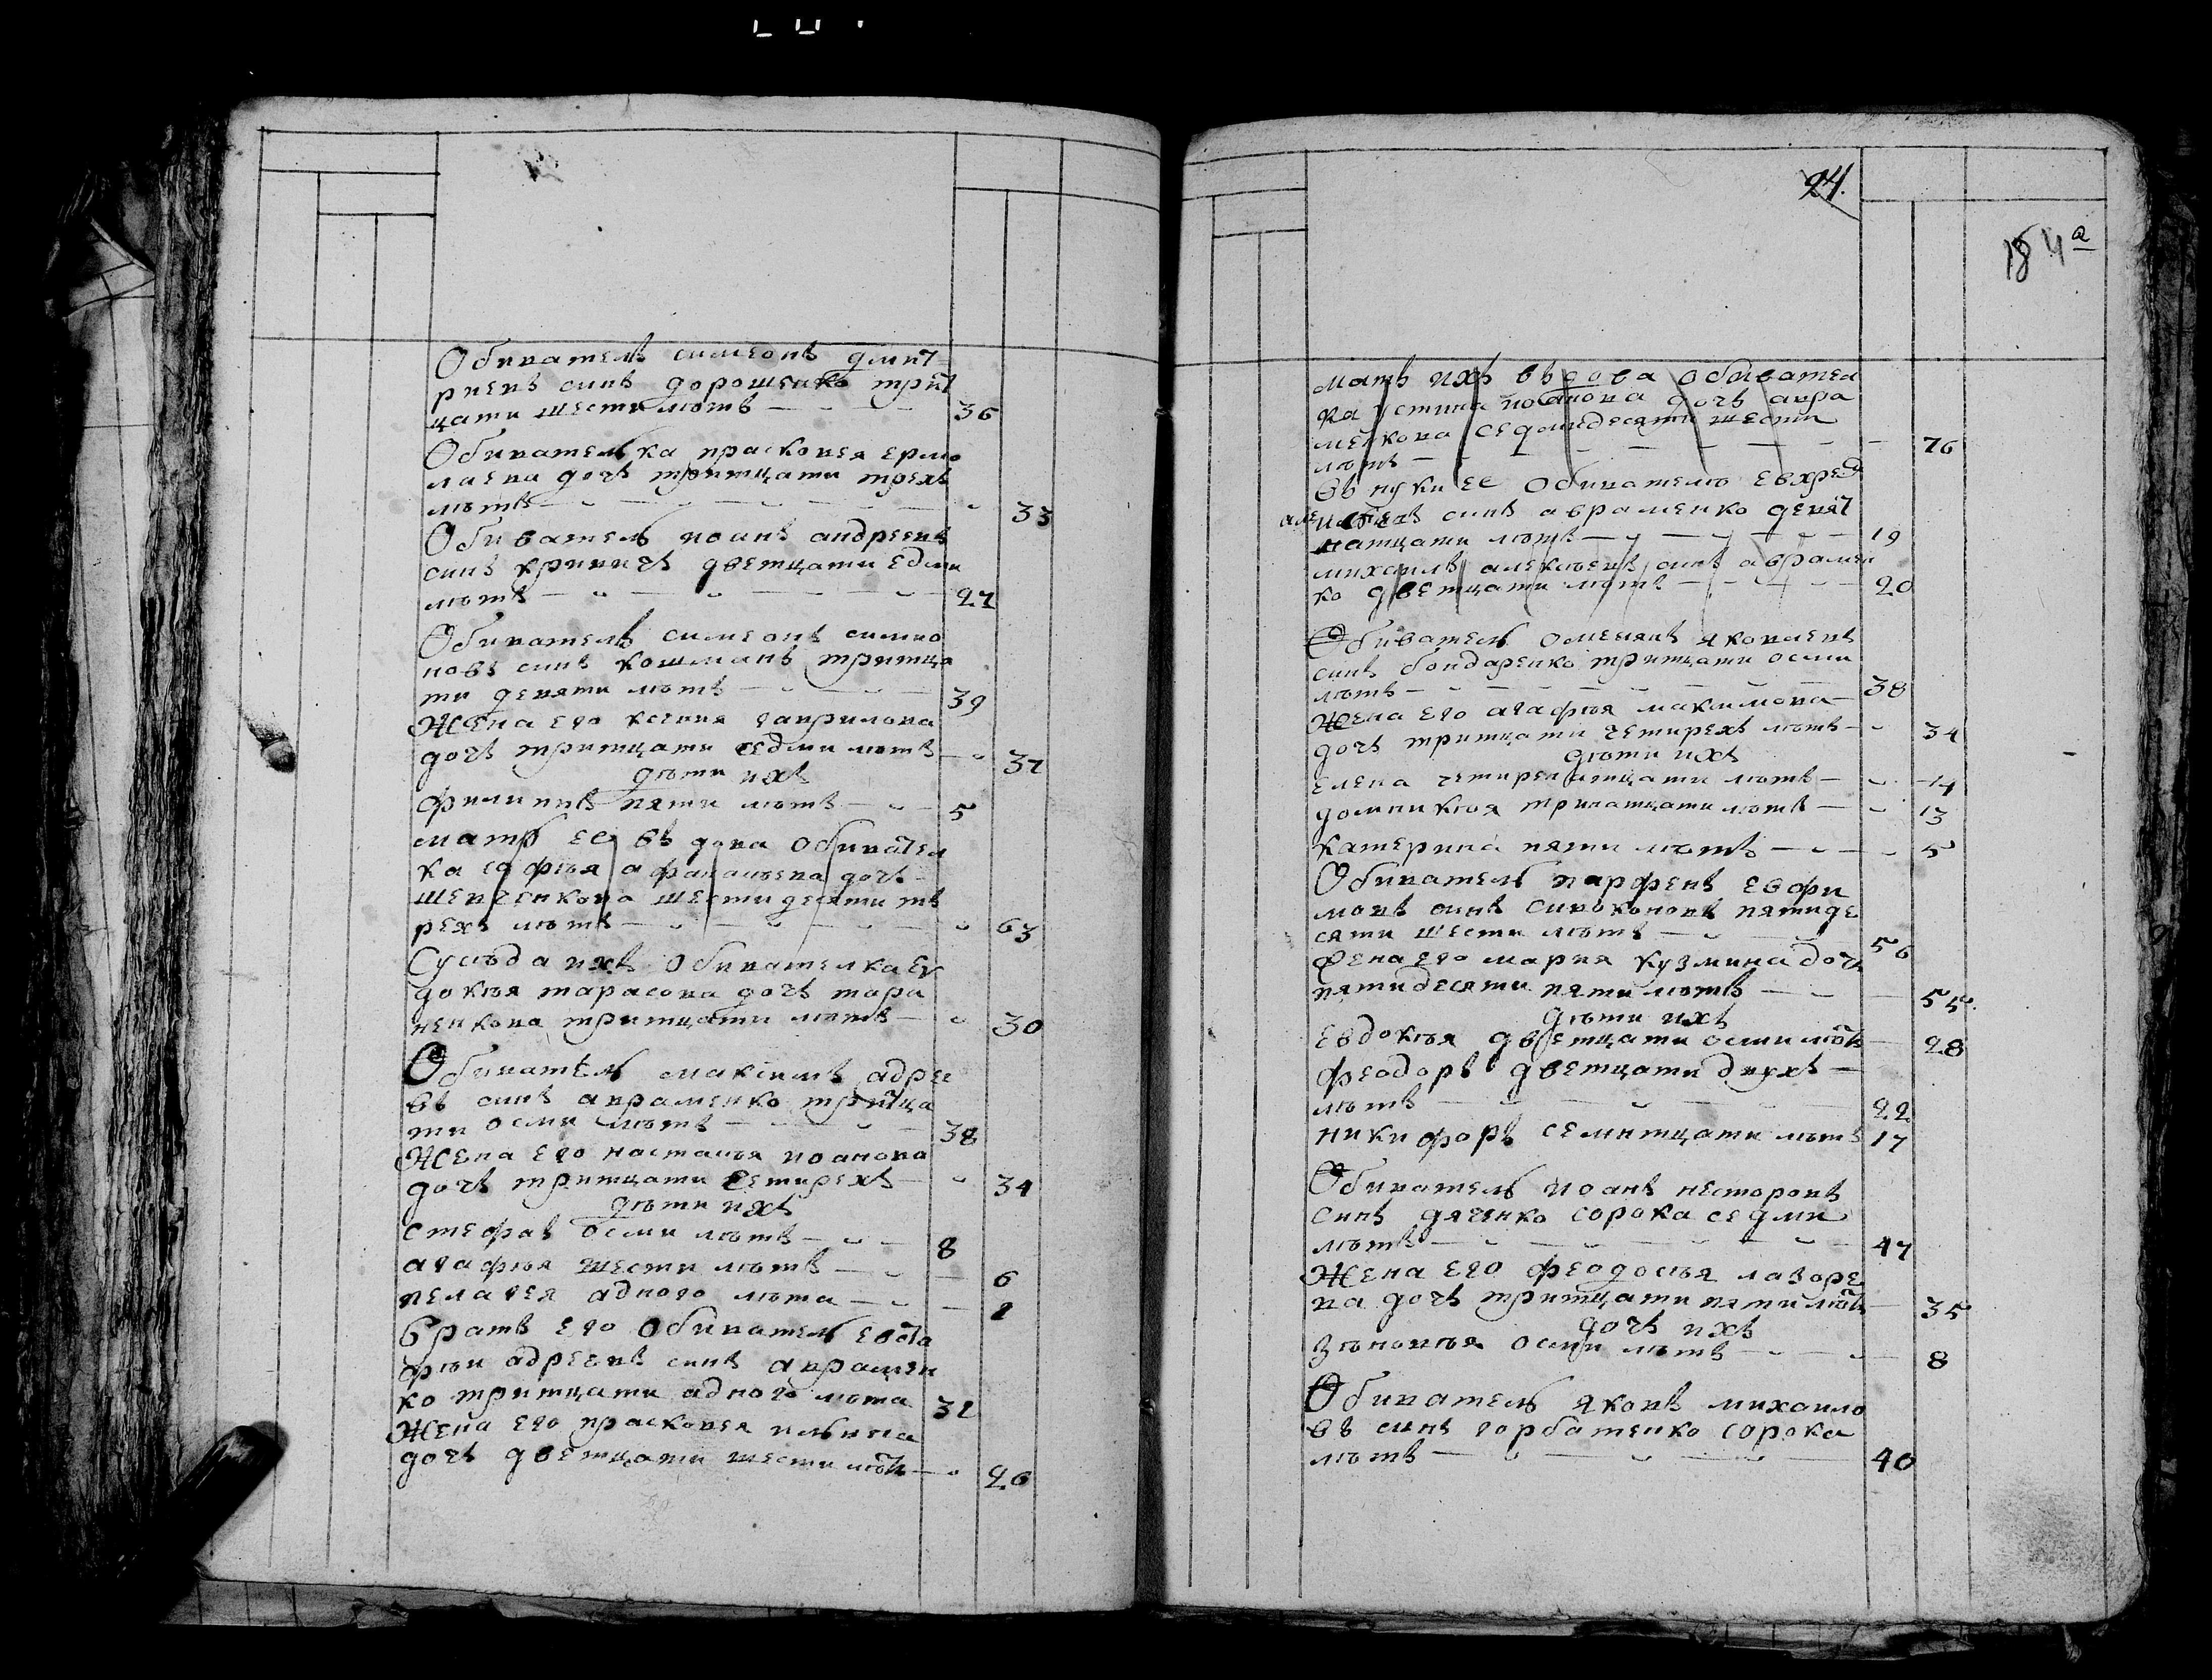 Обиватель симеонъ дмит
риевъ синъ дорошенко трит
цати шести лѣтъ 36
Обивателька прасковея ермо
лаева дочъ тритцати трехъ
лѣтъ 33
Обиватель иоанъ андреевъ
синъ кривичъ дветцати едми
лѣтъ 27
Обиватель симеонъ симио
новъ синъ кошманъ тритца
ти девяти лѣтъ 39
Жена его ксения гаврилова
дочъ тритцати седми лѣтъ 37
дѣти ихъ
филипъ пяти лѣтъ 5
матъ ее въдова обивател
ка софѣя афанасѣева дочъ
шевченкова шестидесяти тъ
рехъ лѣтъ 63
Сусѣда ихъ обивателка ев
докѣя тарасова дочъ тара
ненкова тритцати лѣтъ 30
Обиватель максимъ адрее
въ синъ авраменко тритца
ти осми лѣтъ 38
Жена его настасѣя иоанова
дочъ тритцати четирехъ 34
дѣти ихъ
стефанъ осми лѣтъ 8
агафѣя шести лѣтъ 6
пелагея адного лѣта 1
братъ его обиватель евста
фѣи адреевъ синъ аврамен
ко тритцати адного лѣта 31
Жена его прасковея илвина
дочъ дветцати шести лѣтъ 26
24.
184а
матъ ихъ въдова обивател
ка устина иоанова дочъ авра
менкова седмидесяти шести
лѣтъ 76
въ нуки ее обиватели евхред
алексѣевъ синъ авраменко девят
натцати лѣтъ 19
михаилъ алексѣевъ синъ аврамен
ко дветцати лѣтъ 20
Обиватель омелянъ яковлевъ
синъ бондаренко тритцати осми
лѣтъ 38
Жена его агафѣя максимова
дочъ тритцати четирехъ лѣтъ 34
дѣти ихъ
елена четиренатцати лѣтъ 14
домникѣя тринатцати лѣтъ 13
катерина пяти лѣтъ 5
Обиватель парфенъ евфи
мовъ синъ сивоконовъ пятиде
сяти шести лѣтъ 56
Жена его мария кузмина дочъ
пятидесяти пяти лѣтъ 55
дѣти ихъ
евдокѣя дветцати осми лѣтъ 28
феодоръ дветцати двухъ
лѣтъ 22
никифоръ семнтцати лѣтъ 17
Обиватель иоанъ несторовъ
синъ дяченко сорока седми
лѣтъ 47
Жена его феодосѣя лазоре
ва дочъ тритцати пяти лѣтъ 35
дочъ ихъ
зѣновѣя осми лѣтъ 8
Обиватель яковъ михаило
въ синъ горбатенко сорока
лѣтъ 40